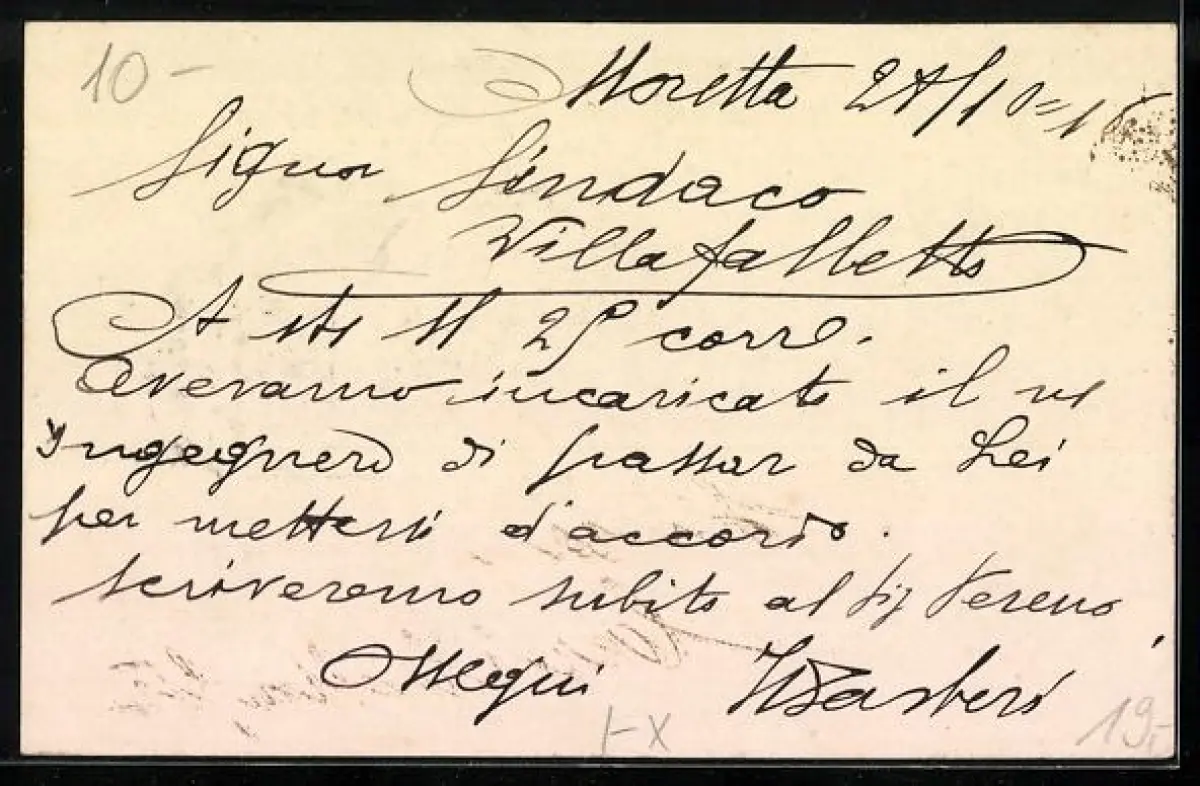 10 -
Moretta 27/10=16
Signor Sindaco
Villafalletto
A sti M 25 corre.
Avevamo incaricato il ns
Ingegnere di passar da Lei
per mettersi d'accordo.
scriveremo subito al Sig
Ossequi
+-x
19.-